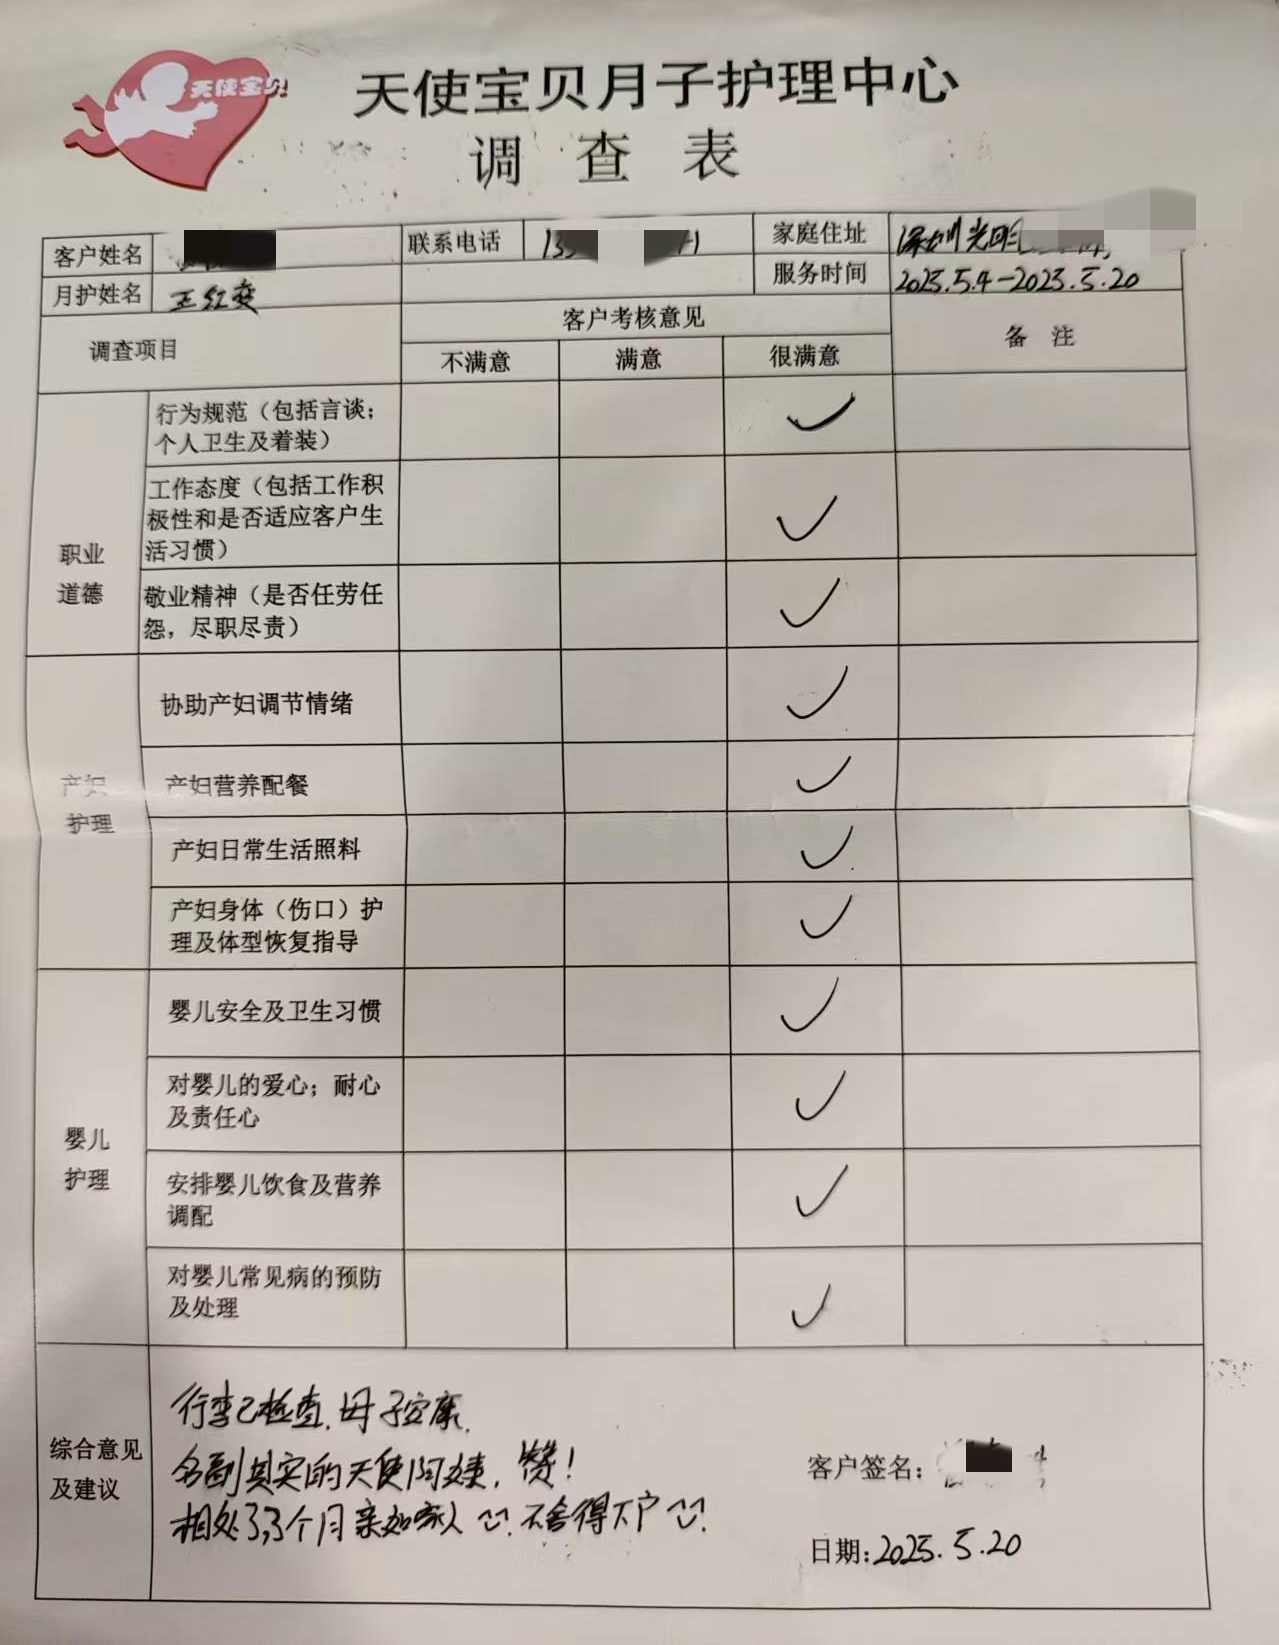 天使宝贝
天使宝贝月子护理中心
调 查 表
客户姓名
联系电话
家庭住址 深圳光明
月护姓名
服务时间 2025.5.4-2025.5.20
调查项目
客户考核意见
备 注
不满意 满意 很满意
职业
道德
行为规范（包括言谈；
个人卫生及着装）
工作态度（包括工作积
极性和是否适应客户生
活习惯）
敬业精神（是否任劳任
怨，尽职尽责）
产妇
护理
协助产妇调节情绪
产妇营养配餐
产妇日常生活照料
产妇身体（伤口）护
理及体型恢复指导
婴儿
护理
婴儿安全及卫生习惯
对婴儿的爱心；耐心
及责任心
安排婴儿饮食及营养
调配
对婴儿常见病的预防
及处理
综合意见
及建议
行李已检查，母子安康，
名副其实的天使阿姨，赞！
相处了3个月亲如家人 不舍得下户
客户签名：
日期：2025.5.20